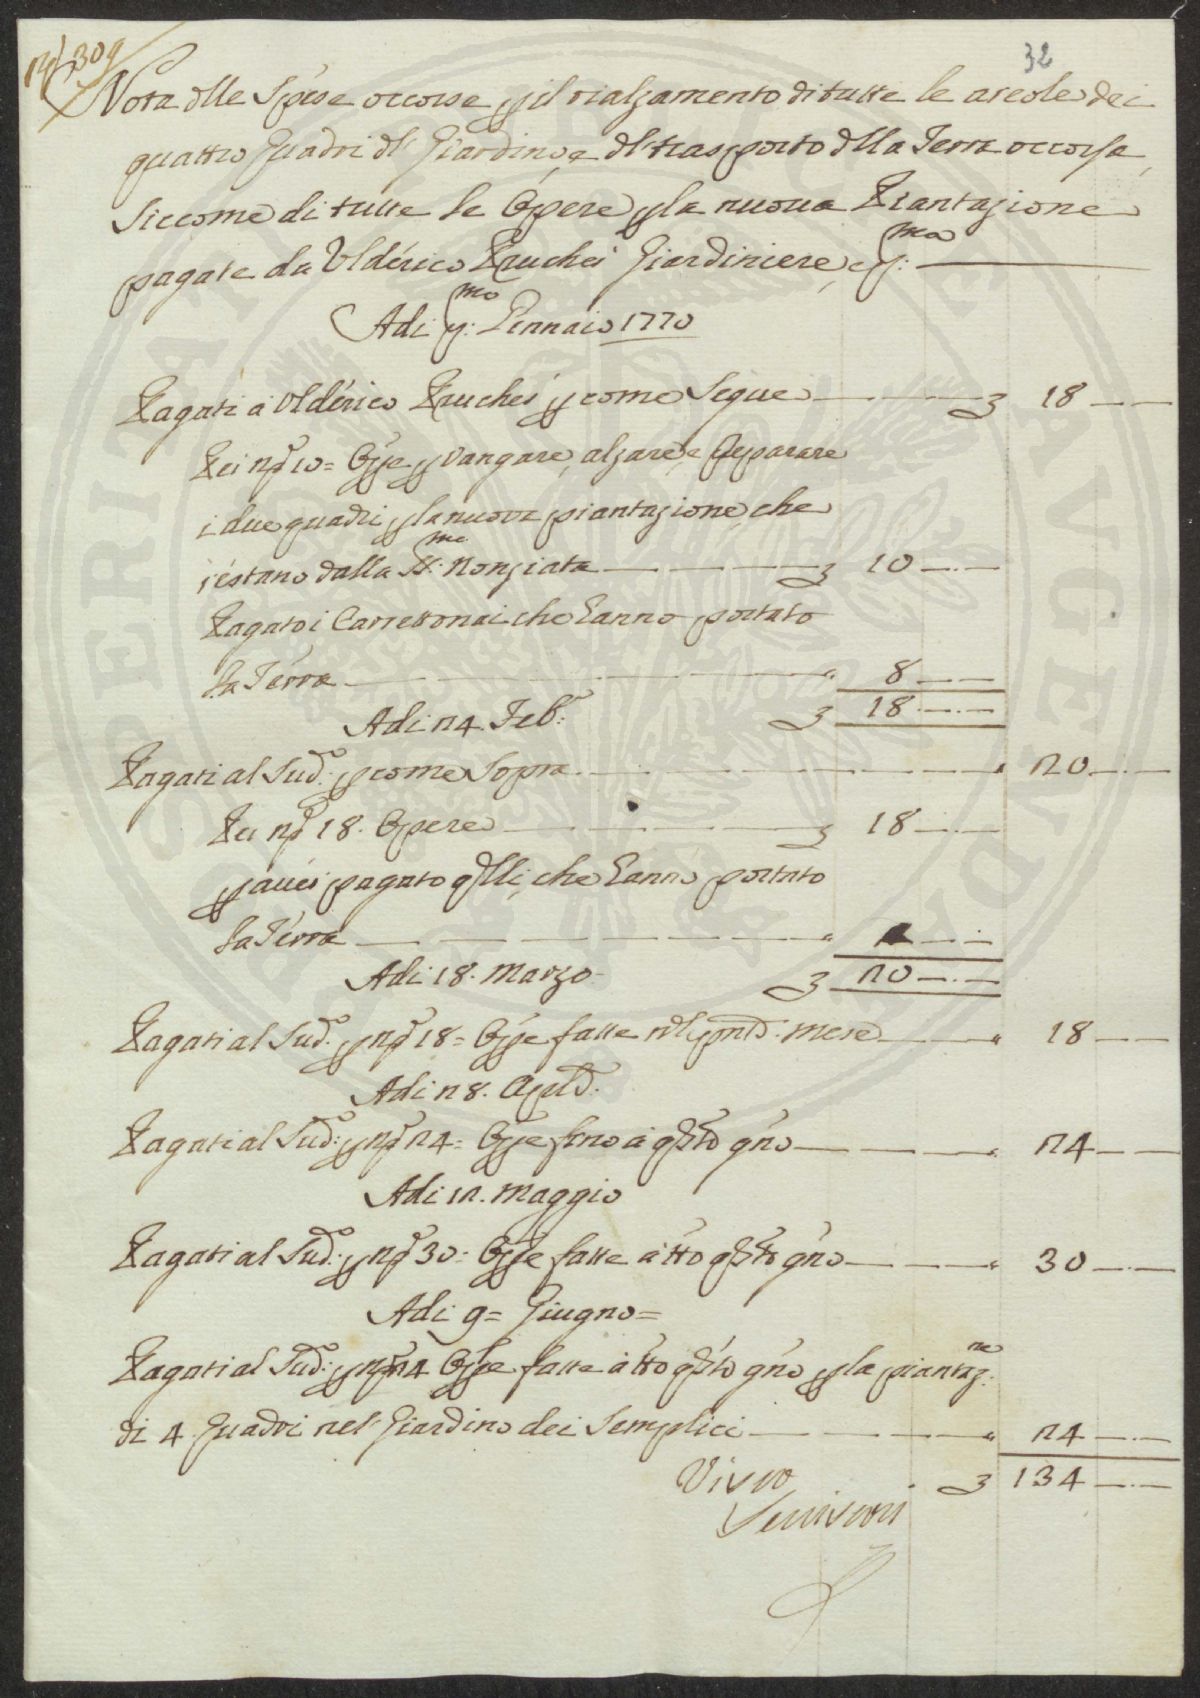 32
Nota dlle Spese occorse p il rialzamento di tutte le areole dei
quattro Quadri dl Giardino, e dl trasporto dlla Terra occorsa,
Siccome di tutte le Opere p la nuova Piantazione
pagate da Uldérico Pruchei Giardiniere, e p:ma
Adi p:mo Gennaio 1770
Pagati à Uldérico Pruchei p come Segue 3 18
Pei no 10 = Opre p vangare, alzare, e Preparare
i due quadri p la nuova piantazione, che
restano dalla SS:ma Nonziata 3 10
Pagato i Carrettonai che hanno portato
la Terra 8
Adi 24. Feb: 3 18
Pagati al Sud: p come Sopra 20
Pei no 18. Opere 3 18
p aver pagato qlli, che hanno portato
la Terra 2
Adi 18. Marzo 3 20
Pagati al Sud: p no 18 = Opre fatte nl pnte mese 18
Adi 28. Aple.
Pagati al Sud: p no 24 = Opre fino à qsto gno 24
Adi 12. Maggio
Pagati al Sud: p no 30 = Opre fatte à tto qsto gno 30
Adi 9 = Giugno =
Pagati al Sud: p no 24 Opre fatte à tto qsto gno p la piantaz:ne
di 4 Quadri nel Giardino dei Semplici 24
Visto 3 134